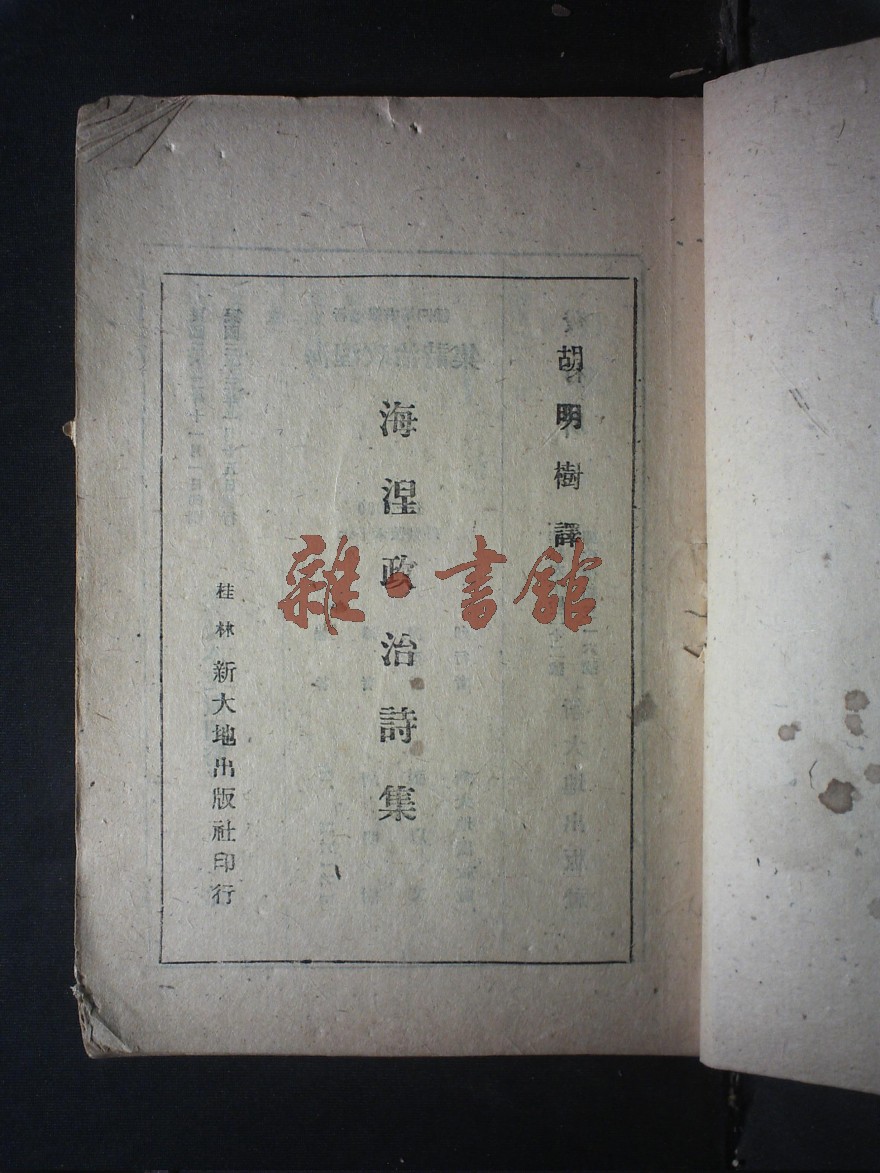 胡明樹譯
海涅政治詩集
桂林新大地出版社印行
雜·書館